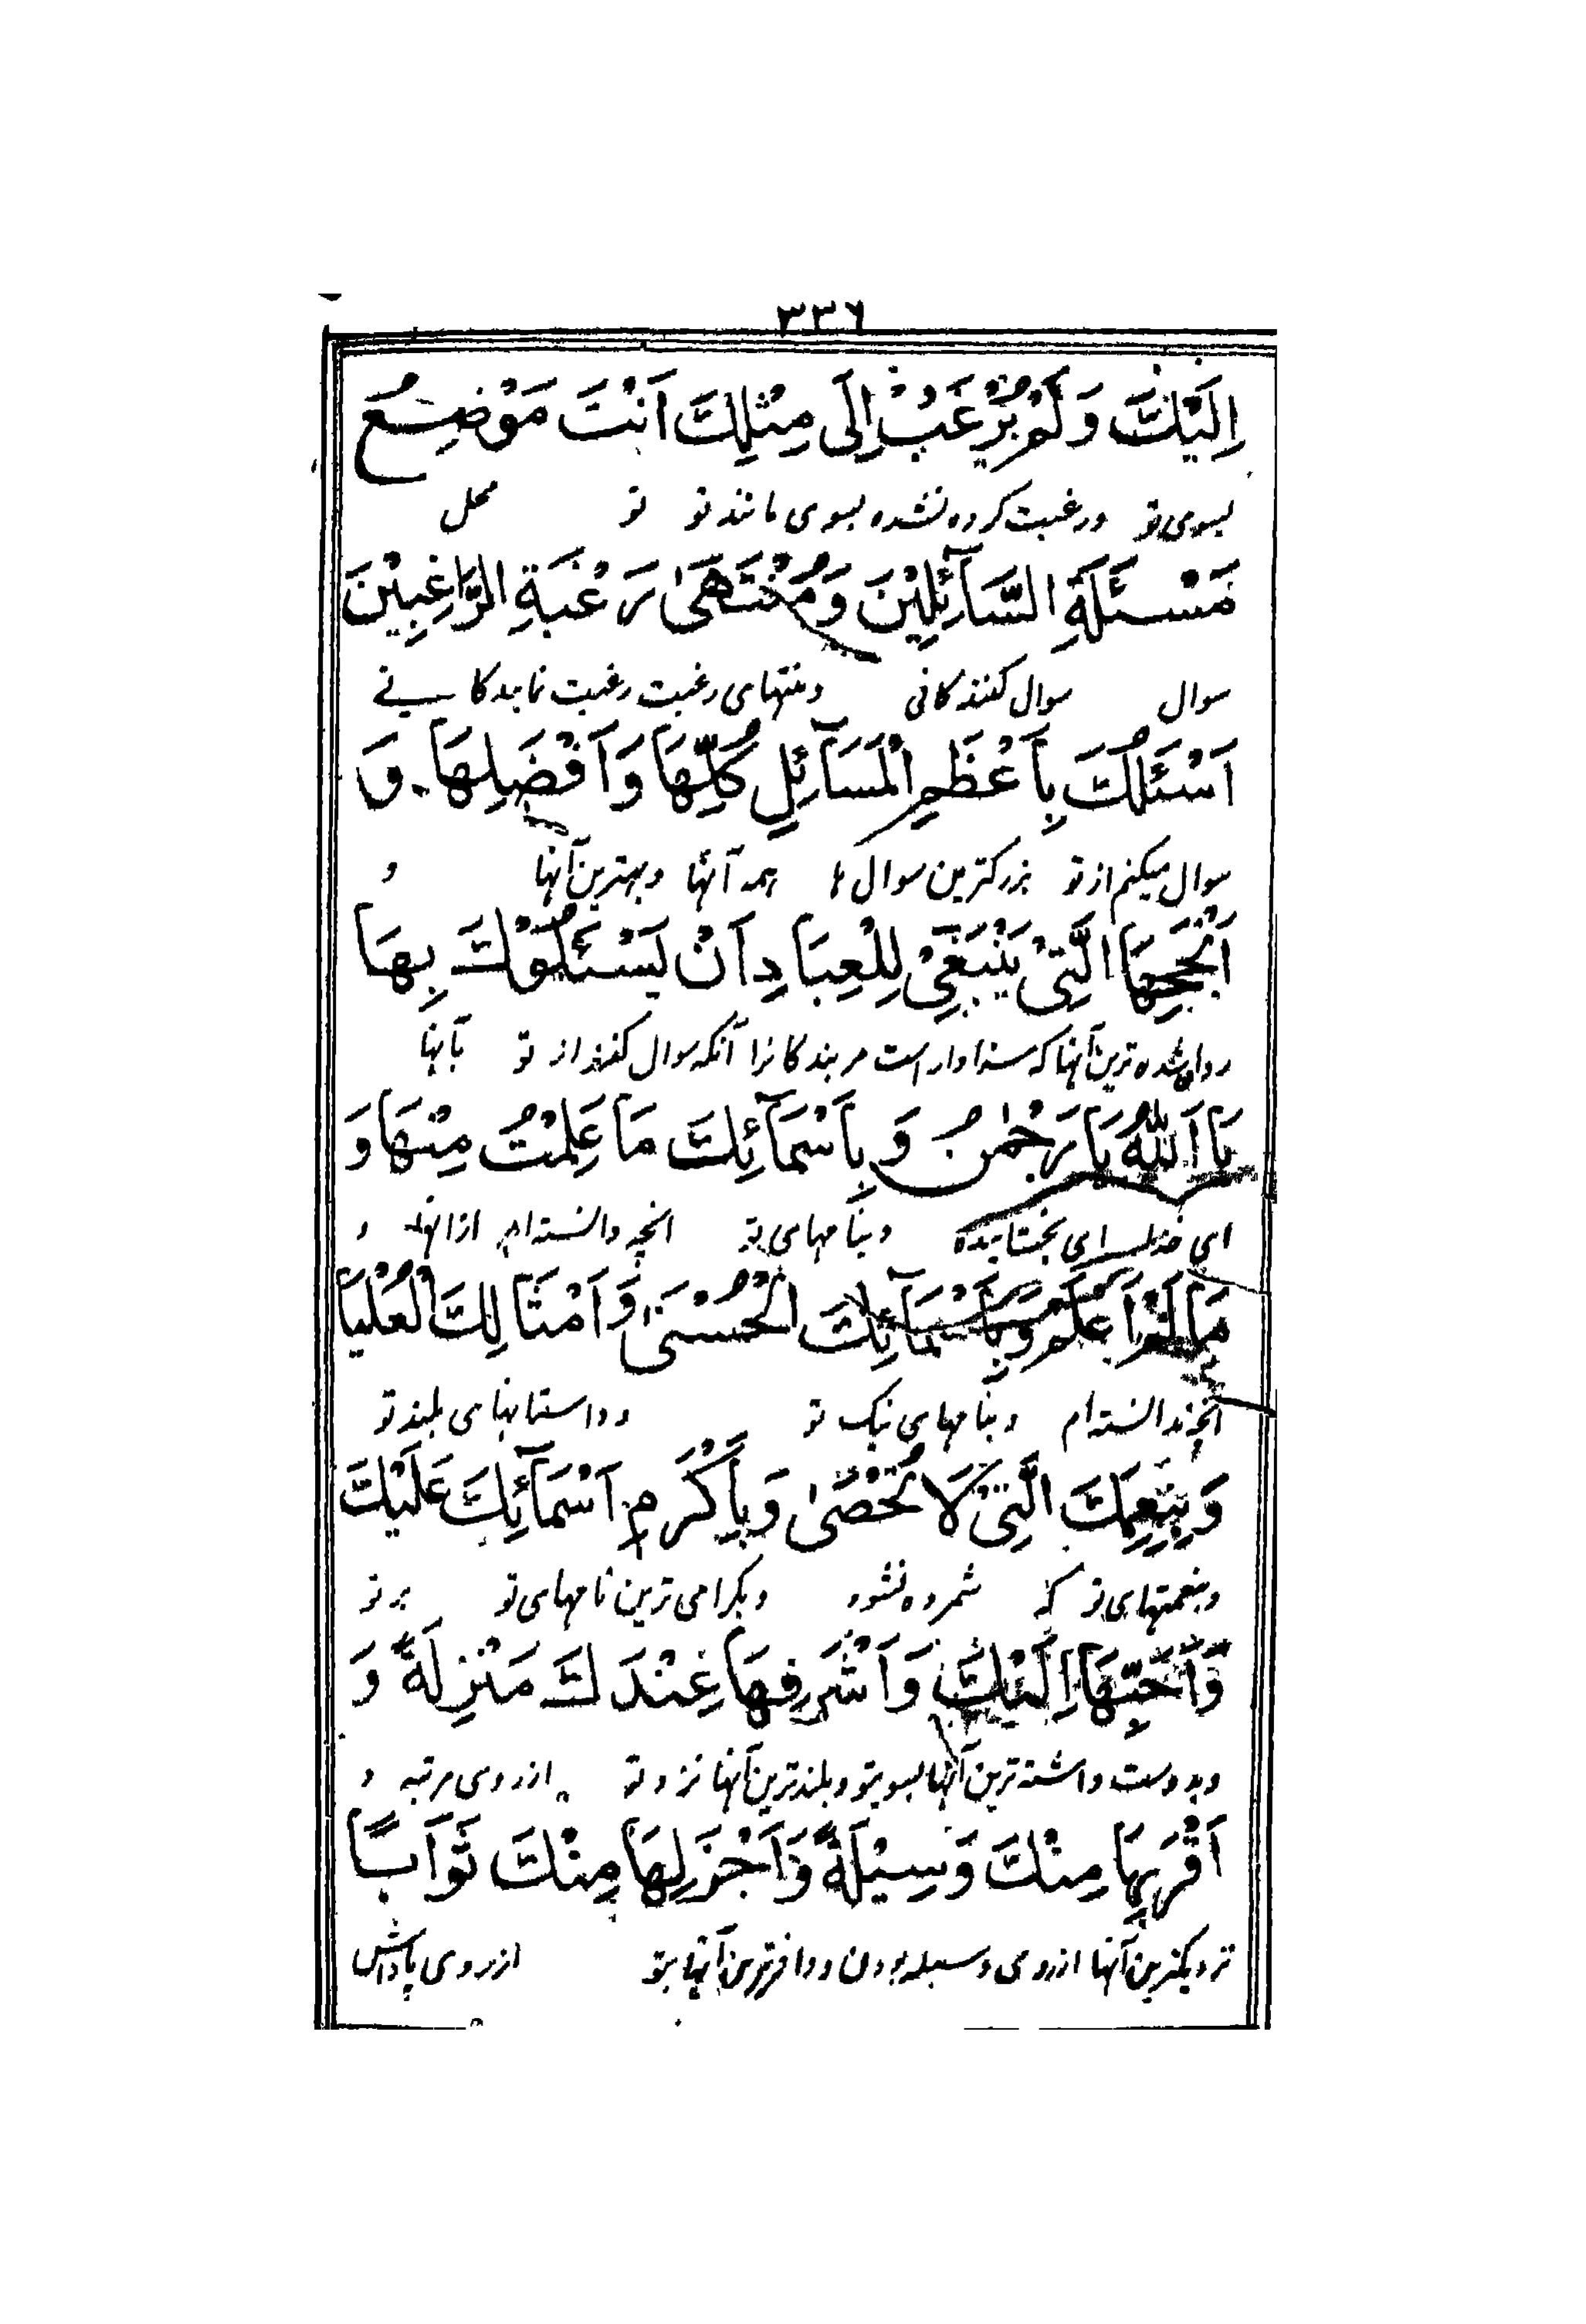 ٣٣٦
اِلَيْكَ وَلَمْ يُرْغَبْ اِلَى مِثْلِكَ اَنْتَ مَوْضِعُ
بسوی تو ورغبت کرده نشده بسوی مانند تو تو محل
مَسْئَلَةِ السَّآئِلِيْنَ وَمُنْتَهَىٰ رَغْبَةِ الرَّاغِبِيْنَ
سوال سوال کنندکانی ومنتهای رغبت رغبت نمایدکانے
اَسْئَلُكَ بِاَعْظَمِ الْمَسَآئِلِ كُلِّهَا وَاَفْضَلِهَا وَ
سوال میکنم از تو بزرکترین سوال ها همه آنها وبهترین آنها و
اَنْجَحِهَا الَّتِىْ يَنْبَغِىْ لِلْعِبَادِ اَنْ يَسْئَلُوْكَ بِهَا
روان شده ترین آنها که سزاوار است مر بندکانرا آنکه سوال کنند از تو بآنها
يَا اَللّٰهُ يَا رَحْمٰنُ وَ بِاَسْمَآئِكَ مَا عَلِمْتُ مِنْهَا وَ
ای خدا ای بخشاینده وبنامهای تو انچه دانسته ام از انها و
مَا لَمْ اَعْلَمْ وَبِاَسْمَآئِكَ الْحُسْنىٰ وَاَمْثَالِكَ الْعُلْيَا
انچه ندانسته ام وبنامهای نیک تو و داستانهای بلند تو
وَبِنِعَمِكَ الَّتِىْ لَا تُحْصٰىٰ وَبِاَكْرَمِ اَسْمَآئِكَ عَلَيْكَ
وبنعمتهای تو که شمرده نشود وبکرامی ترین نامهای تو بر تو
وَاَحَبِّهَا اِلَيْكَ وَاَشْرَفِهَا عِنْدَكَ مَنْزِلَةً وَ
وبدوست داشته ترین آنها بسویتو وبلندترین آنها نزد تو ازروی مرتبه و
اَقْرَبِهَا مِنْكَ وَسِيْلَةً وَاَجْزَلِهَا مِنْكَ ثَوَابًا
نزدیکترین آنها ازروی وسیله بودن ووافرترین آنها بتو ازروی پاداش